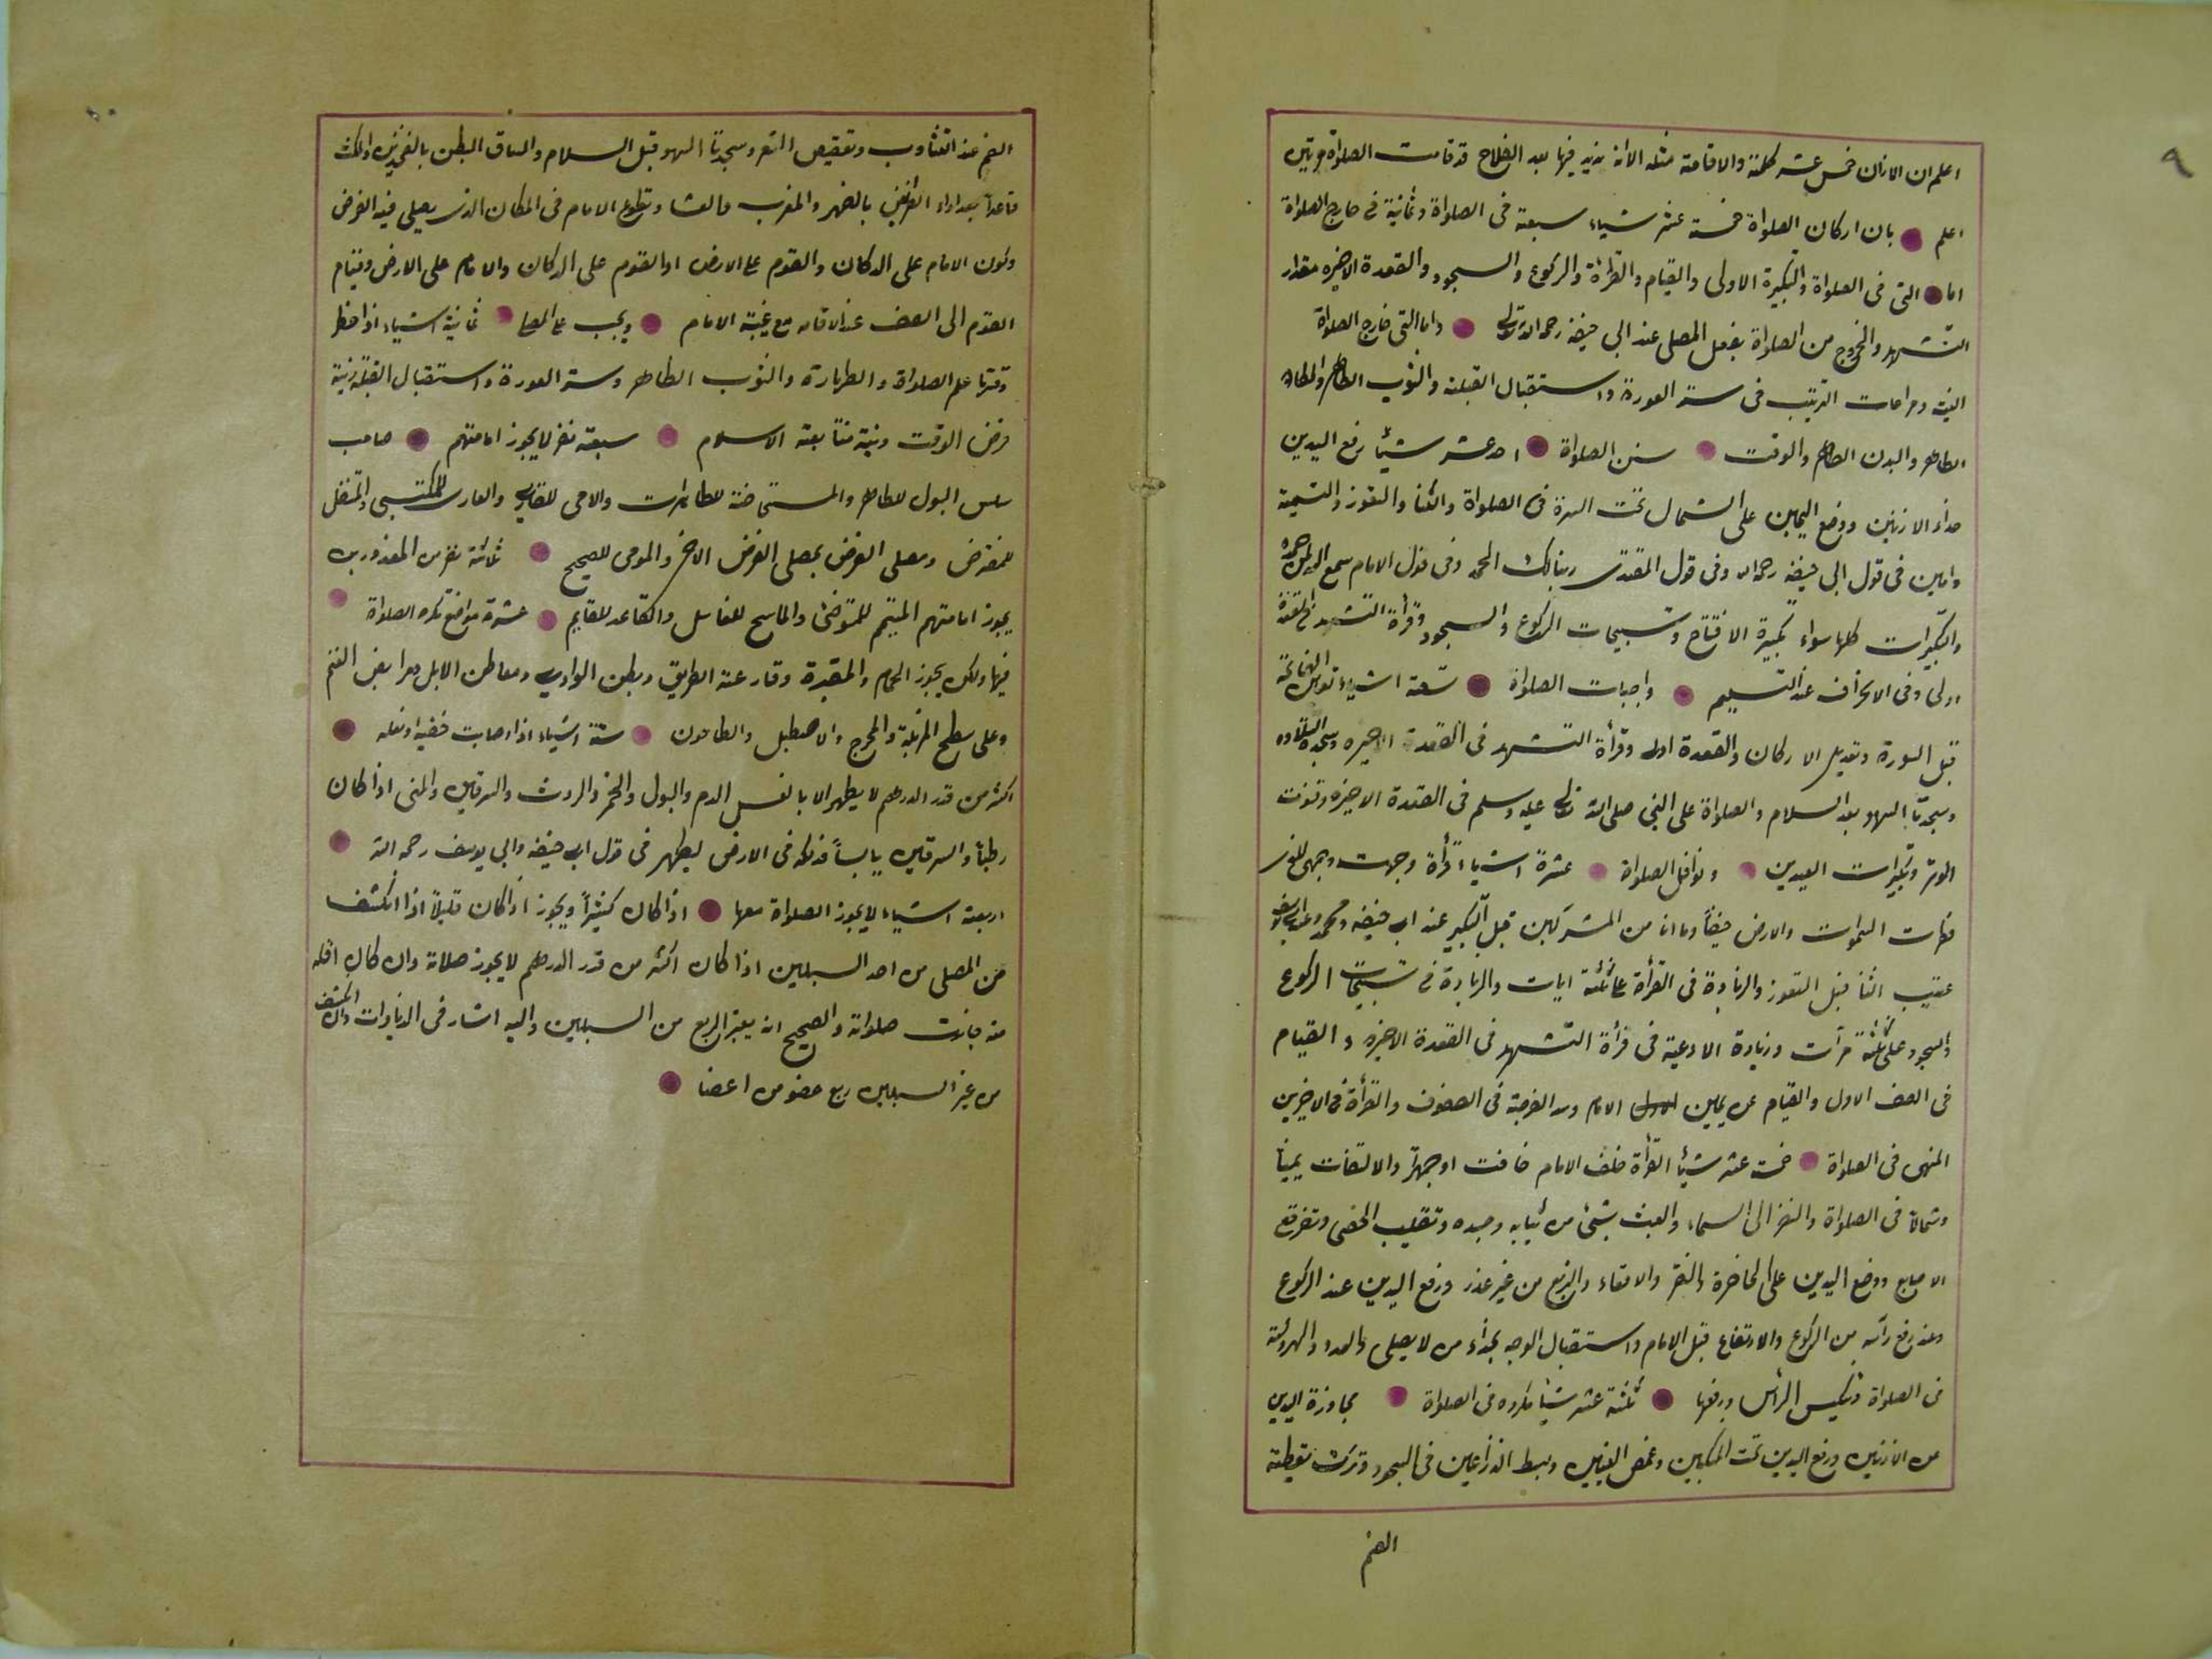 ٩
اعلم ان الاذان خمس عشر كلمة والاقامة مثله الا انه يزيد فيها بعد الفلاح قد قامت الصلواة مرتين
اعلم بان اركان الصلواة خمسة عشر شياء سبعة فى الصلواة وثمانية فى خارج الصلواة
اما التى فى الصلواة والتكبيرة الاولى والقيام والقرائة والركوع والسجود والقعدة الاخيره مقدار
التشهد والخروج من الصلواة بفعل المصلى عند ابى حنيفه رحمه الله تعالى واما التى خارج الصلواة
النية ومراعات الترتيب فى ستر العورة واستقبال القبلة والثوب الطاهر والمكان
الطاهر والبدن الطاهر والوقت سنن الصلواة احد عشر شيأ رفع اليدين
حذاء الاذنين ووضع اليمين على الشمال تحت السرة فى الصلواة والثنا والتعوذ والتسمية
وامين فى قول ابى حنيفه رحمه الله وفى قول المقتدى ربنا لك الحمد وفى قول الامام سمع الله لمن حمده
والتكبيرات كلها سواء تكبيرة الافتتاح وتسبيحات الركوع والسجود وقرأة التشهد فى القعدة
اولى وفى الانحراف عند التسليم واجبات الصلواة تسعة اشياء الفاتحة
قبل السورة وتعديل الاركان والقعدة اولى وقرأة التشهد فى القعدة الاخيره وسجدة التلاوه
وسجدتا السهو بعد السلام والصلواة على النبى صلى الله تعالى عليه وسلم فى القعدة الاخيره وقنوت
الوتر وتكبيرات العيدين ونوافل الصلواة عشرة اشيا قرأة وجهت وجهى للذى
فطرات السموات والارض حنيفاً وما انا من المشركين قبل التكبير عند ابى حنيفه ومحمد وعند ابى يوسف
عقيب الثنا قبل التعوذ والزيادة فى القرأة على ثلثة ايات والزيادة فى تسبيحات الركوع
والسجود على ثلثة مرآت وزيادة الادعية فى قرأة التشهد فى القعدة الاخيره والقيام
فى الصف الاول والقيام عن يمين الامام وسد الفرجة فى الصفوف والقرأة فى الاخرين
المنهى فى الصلواة خمسة عشر شيأ القرأة خلف الامام خافت او جهرً والالتفات يميناً
وشمالاً فى الصلواة والنظر الى السماء والعبث بشئ من ثيابه وجسده وتقليب الحصى وتفرقع
الاصابع ووضع اليدين على الخاضرة والنقر والاقعاء والتربع من غير عذر ورفع اليدين عند الركوع
وعند رفع رأسه من الركوع والارتفاع قبل الامام واستقبال الوجه بحذاء من لا يصلى
فى الصلواة وتنكيس الرأس ورفعها ثلثة عشر شيأ مكروه فى الصلواة مجاوزة اليدين
عن الاذنين ورفع اليدين تحت المنكبين وغمض العينين وبسط الذراعين فى السجود وترك تغطية
الفم
الفم عند التثأوب وتعقيص الشعر وسجدتا السهو قبل السلام والصاق البطن بالفخذين والمكث
قاعداً بعد اداء الفرايض بالظهر والمغرب والعشا وتطوع الامام فى المكان الذى يصلى فيه الفرض
وكون الامام على الدكان والقوم على الارض او القوم على الدكان والامام على الارض وقيام
القوم الى الصف عند الاقامه مع غيبة الامام ويجب على المصلى ثمانية اشياء اذا حظر
وقتها علم الصلواة والطهارة والثوب الطاهر وستر العورة واستقبال القبلة ونية
فرض الوقت ونية متابعة الاسلام سبعة نفر لا يجوز امامتهم صاحب
سلس البول للطاهر والمستحاضة للطاهرات والامى للقارى والعارى للمكتسى والمتنفل
للمفترض ومصلى الفرض بمصلى الفرض الاخر والمومى للصحيح ثلاثة نفر من المعذورين
يجوز امامتهم المتيمم للمتوضئ والماسح للغاسل والقاعد للقايم عشرة مواضع تكره الصلواة
فيها ولكن يجوز الحمام والمقبرة وقارعة الطريق وبطن الوادى ومعاطن الابل ومرابض الغنم
وعلى سطح المزبلة والمخرج والاصطبل والطاحون ستة اشياء اذا اصابت خفيه او نعله
اكثر من قدر الدرهم لا يطهر الا بالغسل الدم والبول والخمر والروث والسرقين والمنى اذا كان
رطباً والسرقين يابساً فدلكه فى الارض ليطهر فى قول ابى حنيفه وابى يوسف رحمه الله
اربعة اشياء لا يجوز الصلواة معها اذا كان كثيراً ويجوز اذا كان قليلاً اذا انكشف
من المصلى من احد السبيلين اذا كان اكثر من قدر الدرهم لا يجوز صلاته وان كان اقله
منه جازت صلواته والصحيح انه يعتبر الربع من السبيلين واليه اشار فى الزيادات وان انكشف
من غير السبيلين ربع عضو من اعضا